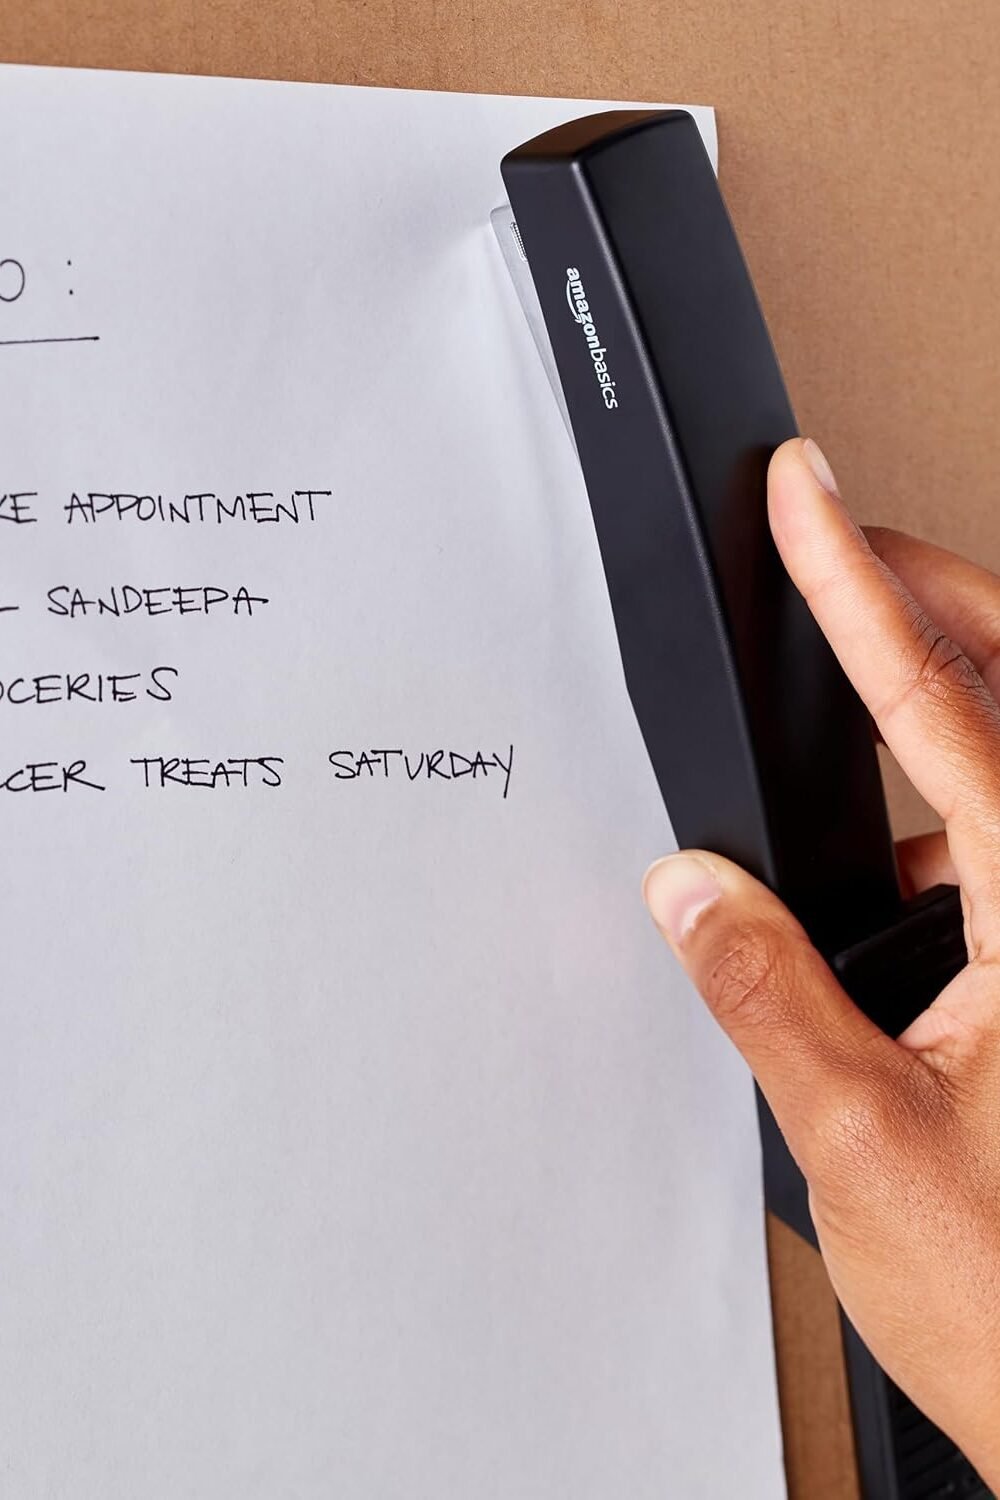 O :
KE APPOINTMENT
L SANDEEPA
OCERIES
CCER TREATS SATURDAY
amazonbasics